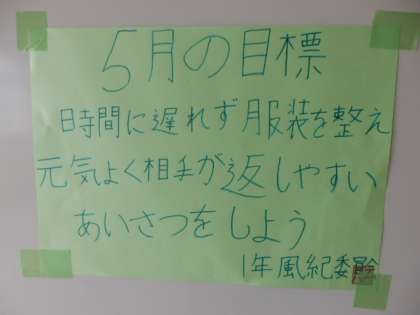 5月の目標
時間に遅れず服装を整え
元気よく相手が返しやすい
あいさつをしよう
1年風紀委員会